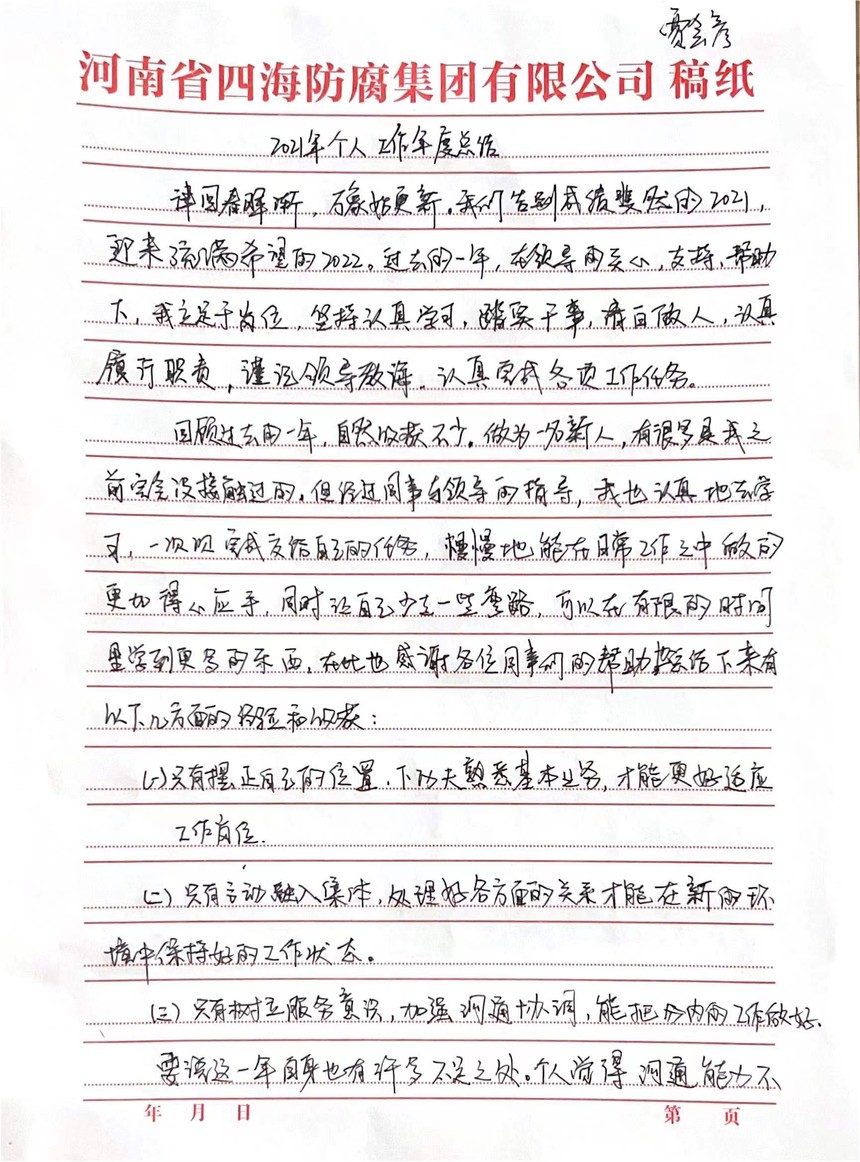 贾会彦
河南省四海防腐集团有限公司 稿纸
2021年个人工作年度总结
律回春晖渐，万象始更新。我们告别成绩斐然的2021，
迎来充满希望的2022。过去的一年，在领导的关心，支持，帮助
下，我立足于岗位，坚持认真学习，踏实干事，清白做人，认真
履行职责，谨记领导教诲。认真完成各项工作任务。
回顾过去的一年，自然收获不少。做为一名新人，有很多是我之
前完全没接触过的。但经过同事与领导的指导，我也认真地去学
习，一次次完成交给自己的任务，慢慢地能在日常工作之中做的
更加得心应手，同时让自己少走一些弯路，可以在有限的时间
里学到更多的东西，在此也感谢各位同事们的帮助总结下来有
以下几方面的经验和收获：
(一)只有摆正自己的位置，下功夫熟悉基本业务，才能更好适应
工作岗位.
(二)只有主动融入集体，处理好各方面的关系才能在新的环
境中保持好的工作状态。
(三)只有树立服务意识，加强沟通协调，能把分内的工作做好.
要说这一年自身也有许多不足之处。个人觉得沟通能力不
年 月 日
第 页